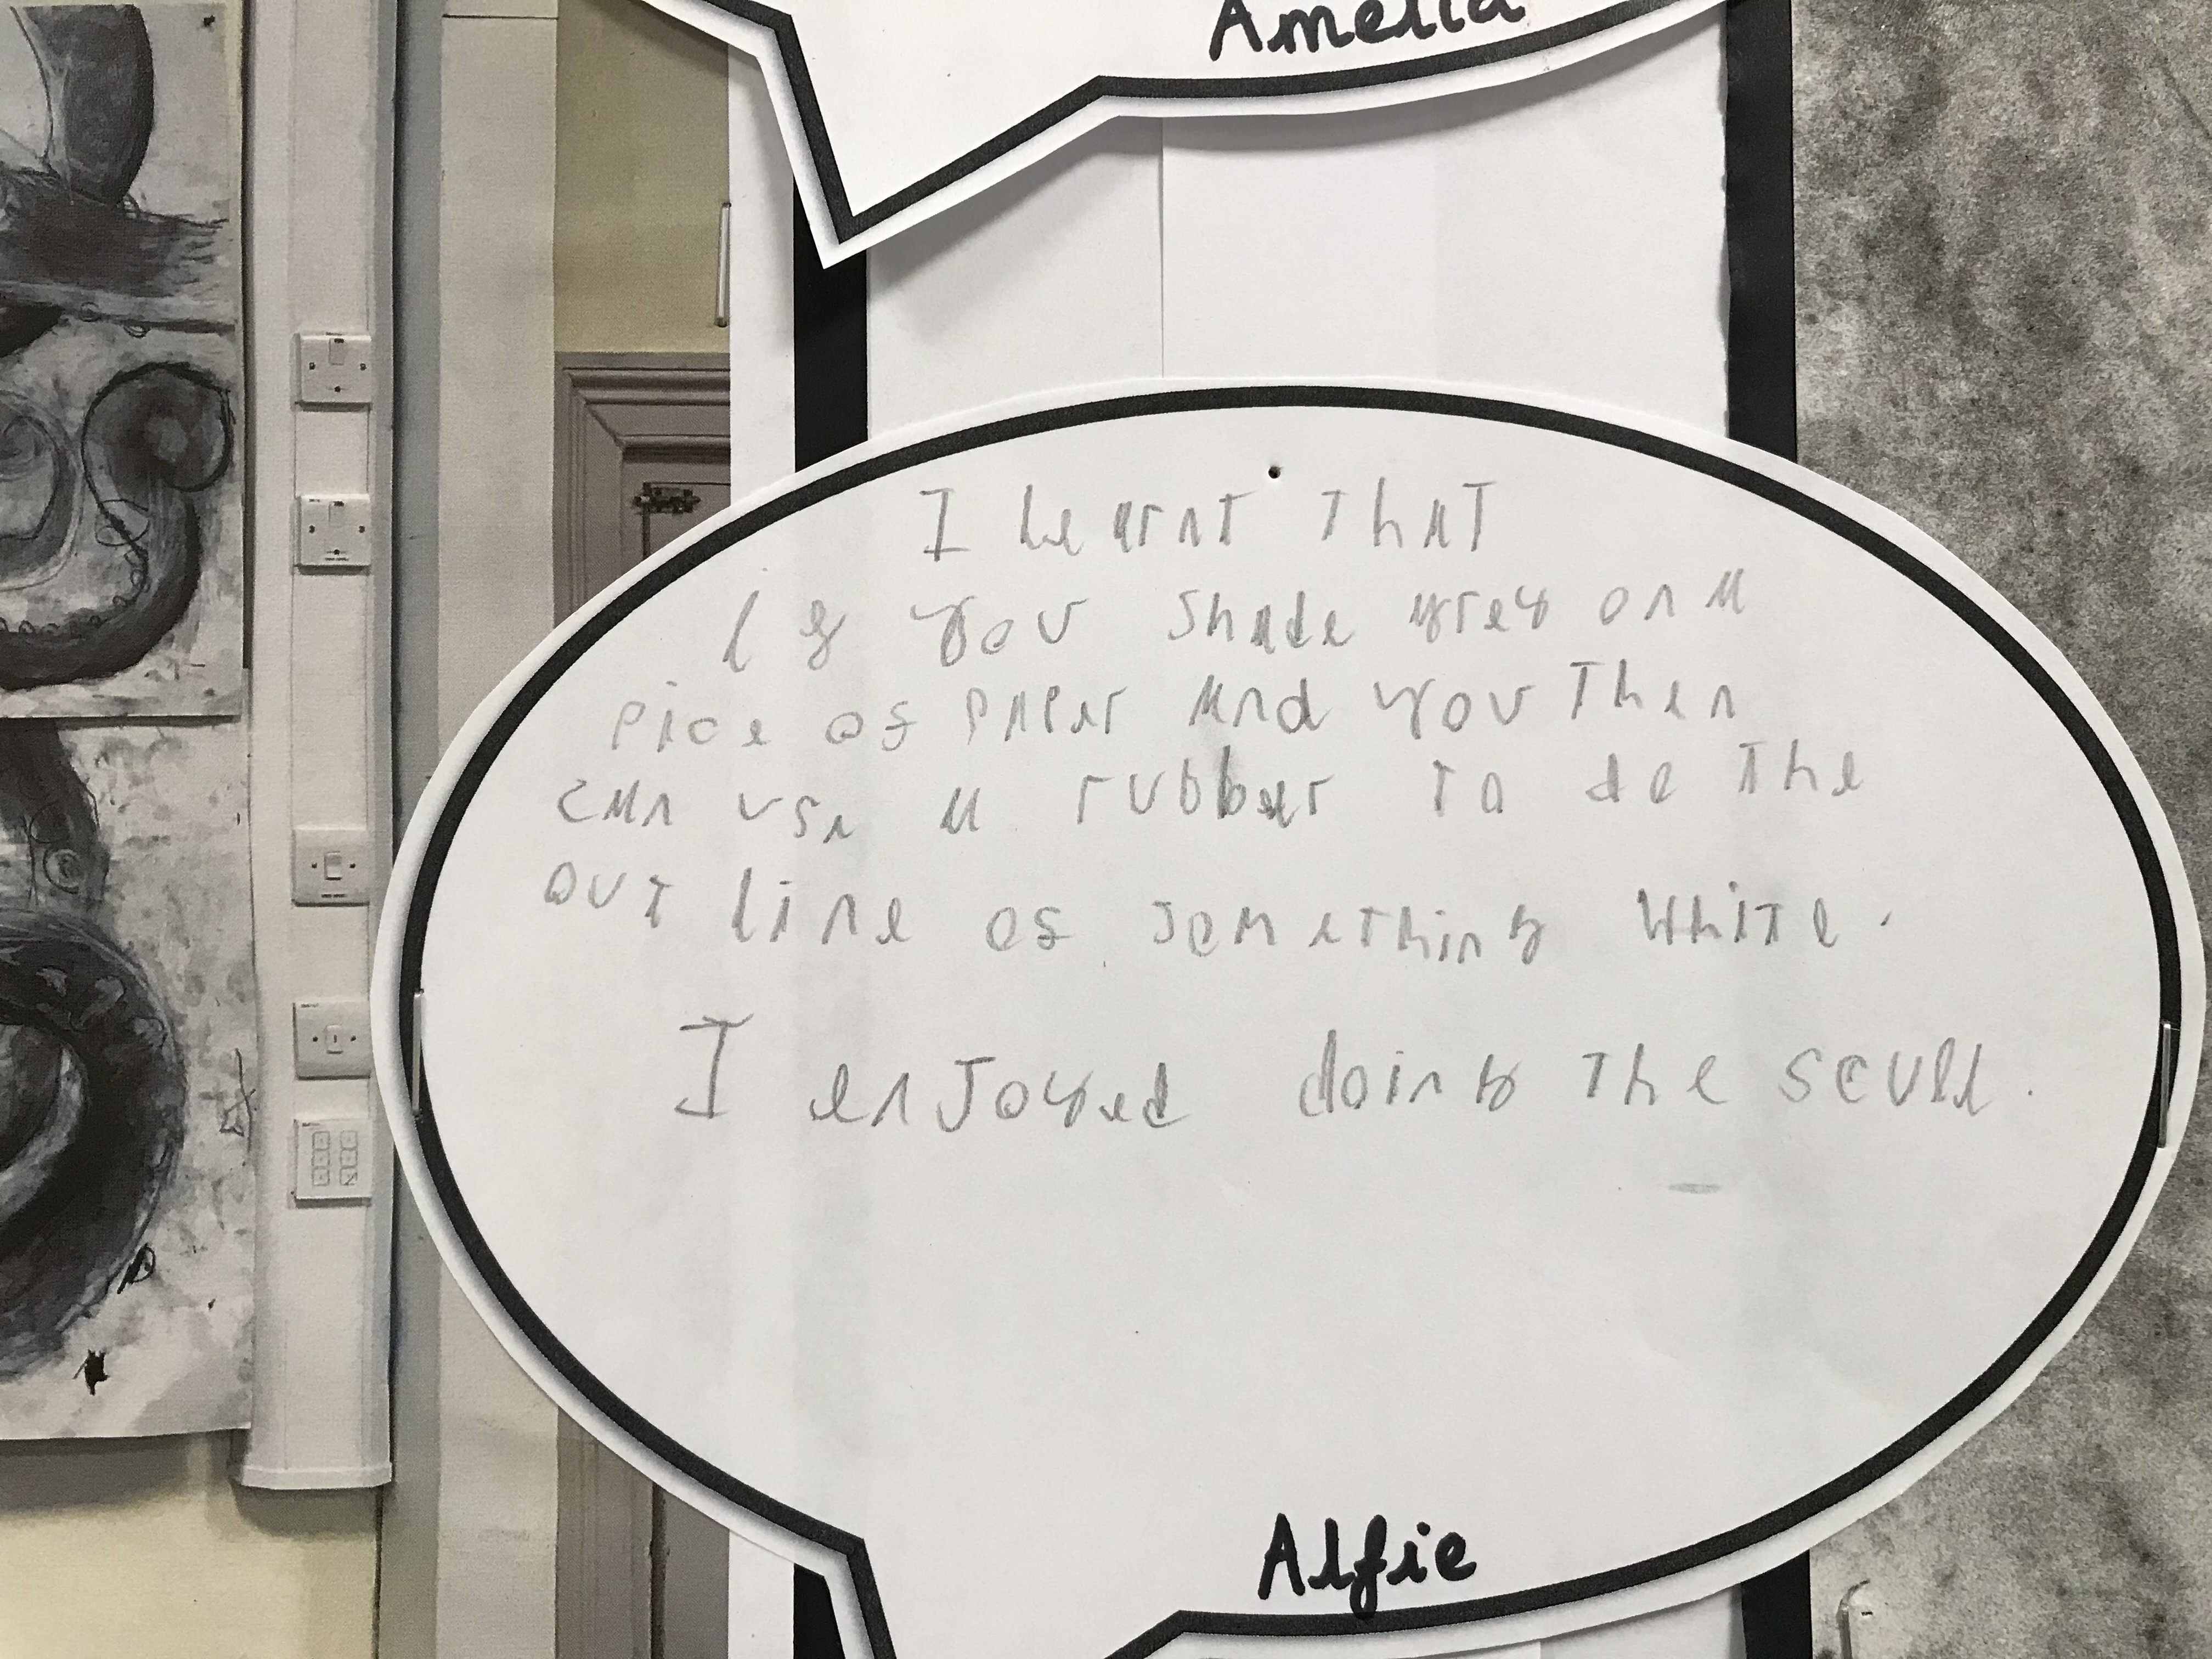 Amelia
I learnt that
if you shade grey on a
pice of paper and you then
can use a rubber to do the
out line of something white.
I enjoyed doing the scull.
Alfie